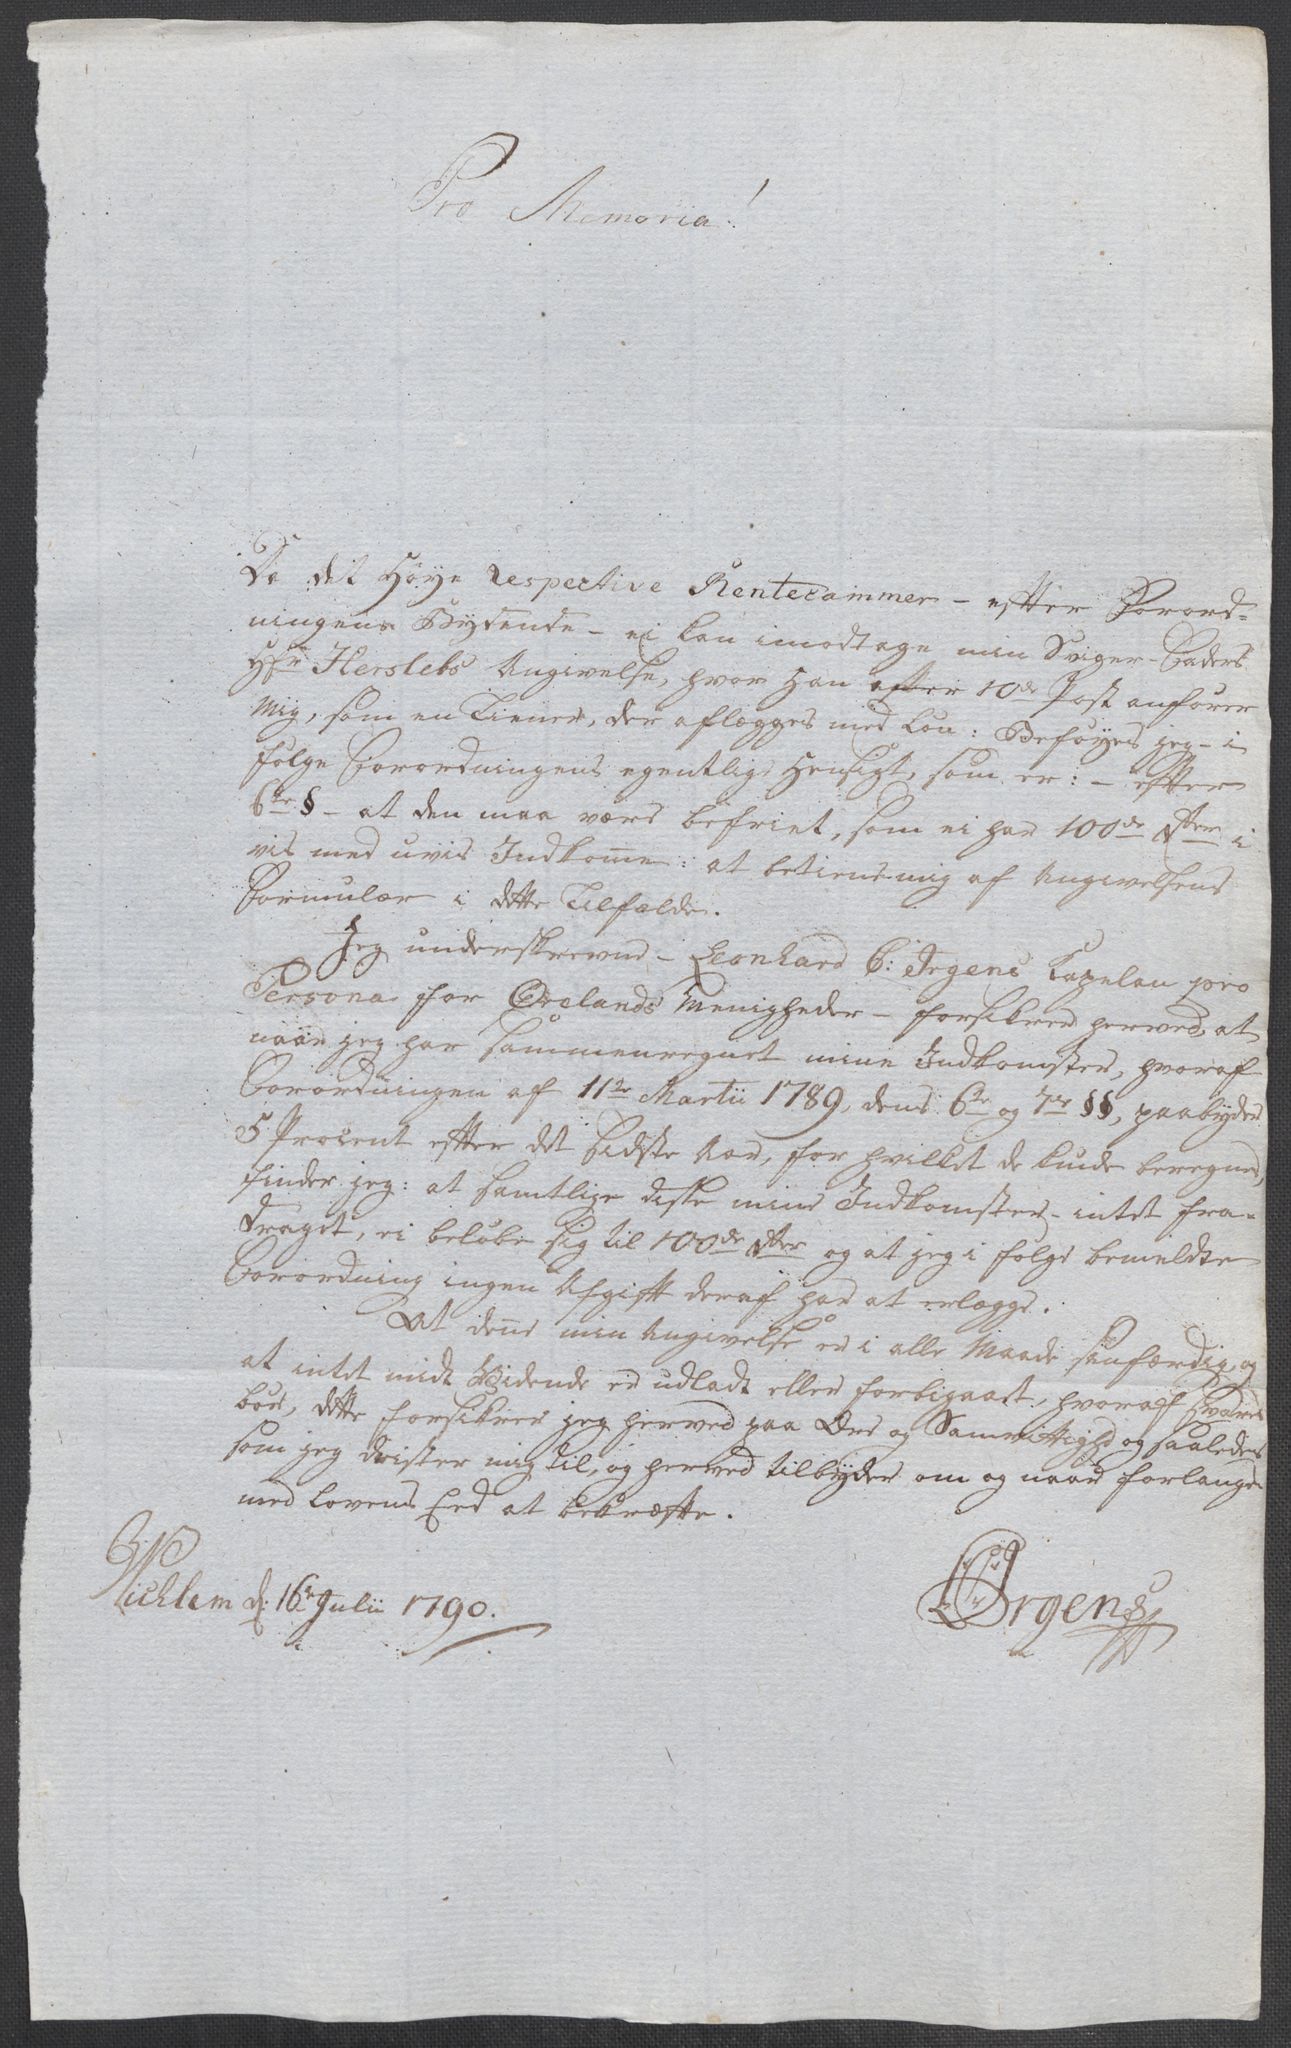 Pro Memoria!
Da det Høye respective Rentecammer - efter Forord-
ningens Bydende - ei kan imodtage min Sviger-Faders
Hr Herslebs Angivelse, hvor Han efter 10de Post anfører
Mig, som en Tiener, der aflægges med Løn: Beføyes jeg - i
følge Forordningens egentlige Hensigt, som er: - efter
6te § - at den maa være befriet, som ei har 100de rdler i
vis med uvis Indkomme: at betiene mig af Angivelsens
Formular i dette Tilfælde.
Jeg underskrevne - Leonhard C: Irgens Capelan pro
Persona for Ørelands Menigheder - forsikrer herved, at
naar jeg har sammenregnet mine Indkomster, hvoraf
Forordningen af 11te Martii 1789, dens 6te og 7de §§, paabyder
5 Procent efter det sidste Aar, for hvilket de kunde beregnes,
finder jeg: at samtlige disse mine Indkomster - intet fra-
draget, ei beløbe sig til 100de rdler og at jeg i følge bemeldte
Forordning ingen Afgift deraf har at erlægge.
At denne min Angivelse er i alle Maade sanfærdig, og
at intet midt Vidende er udladt eller forbigaaet, hvoraf svares
bør, dette forsikrer jeg herved paa Ære og Samvittighd og saaledes
som jeg drister mig til, og herved tilbyder om og naar forlanges
med Lovens Eed at bekræfte.
Wichlem d: 16de Julii 1790.
LC Irgens